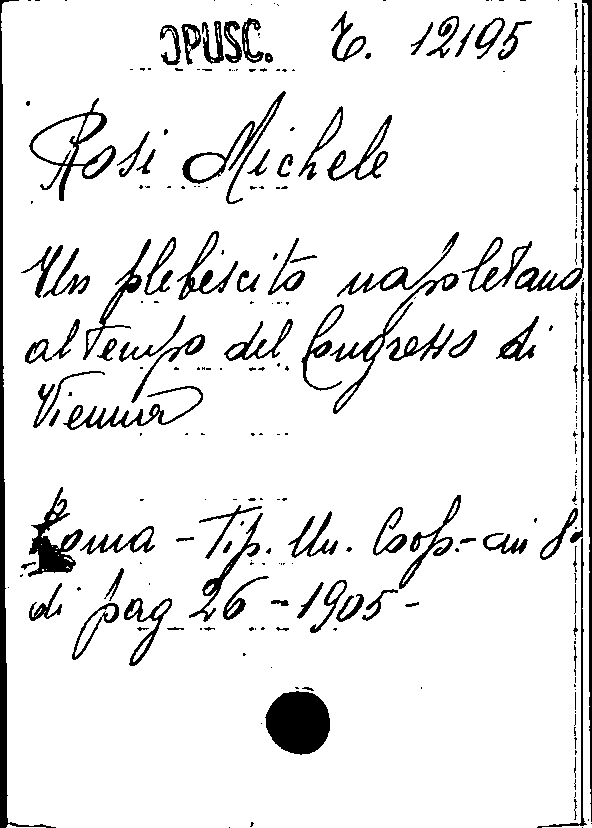 OPUSC. T. 12195
Rosi Michele
Un plebiscito napoletano
al tempo del Congresso di
Vienna
Roma - Tip. Un. Coop. - in 8°
di pag 26 - 1905 -